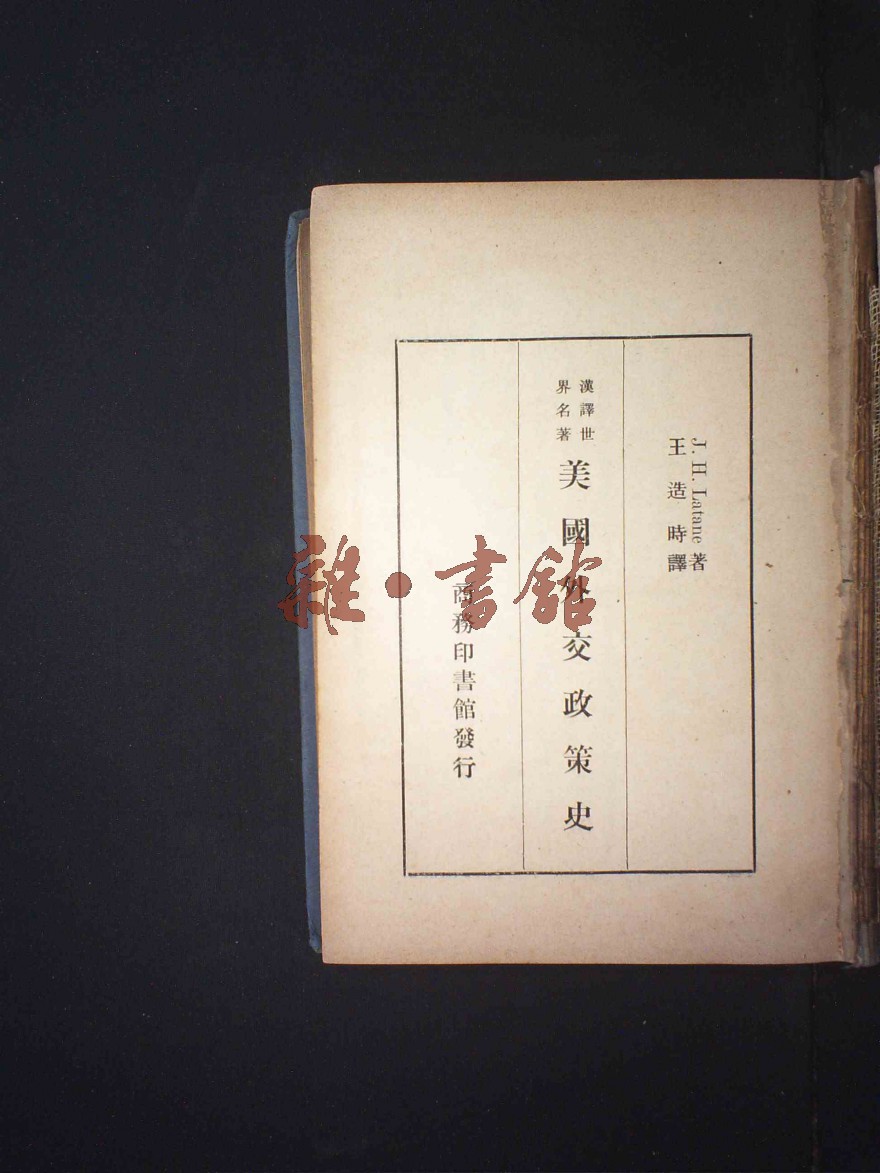 J. H. Latane著
王造時譯
漢譯世
界名著
美國外交政策史
商務印書館發行
雜·書館